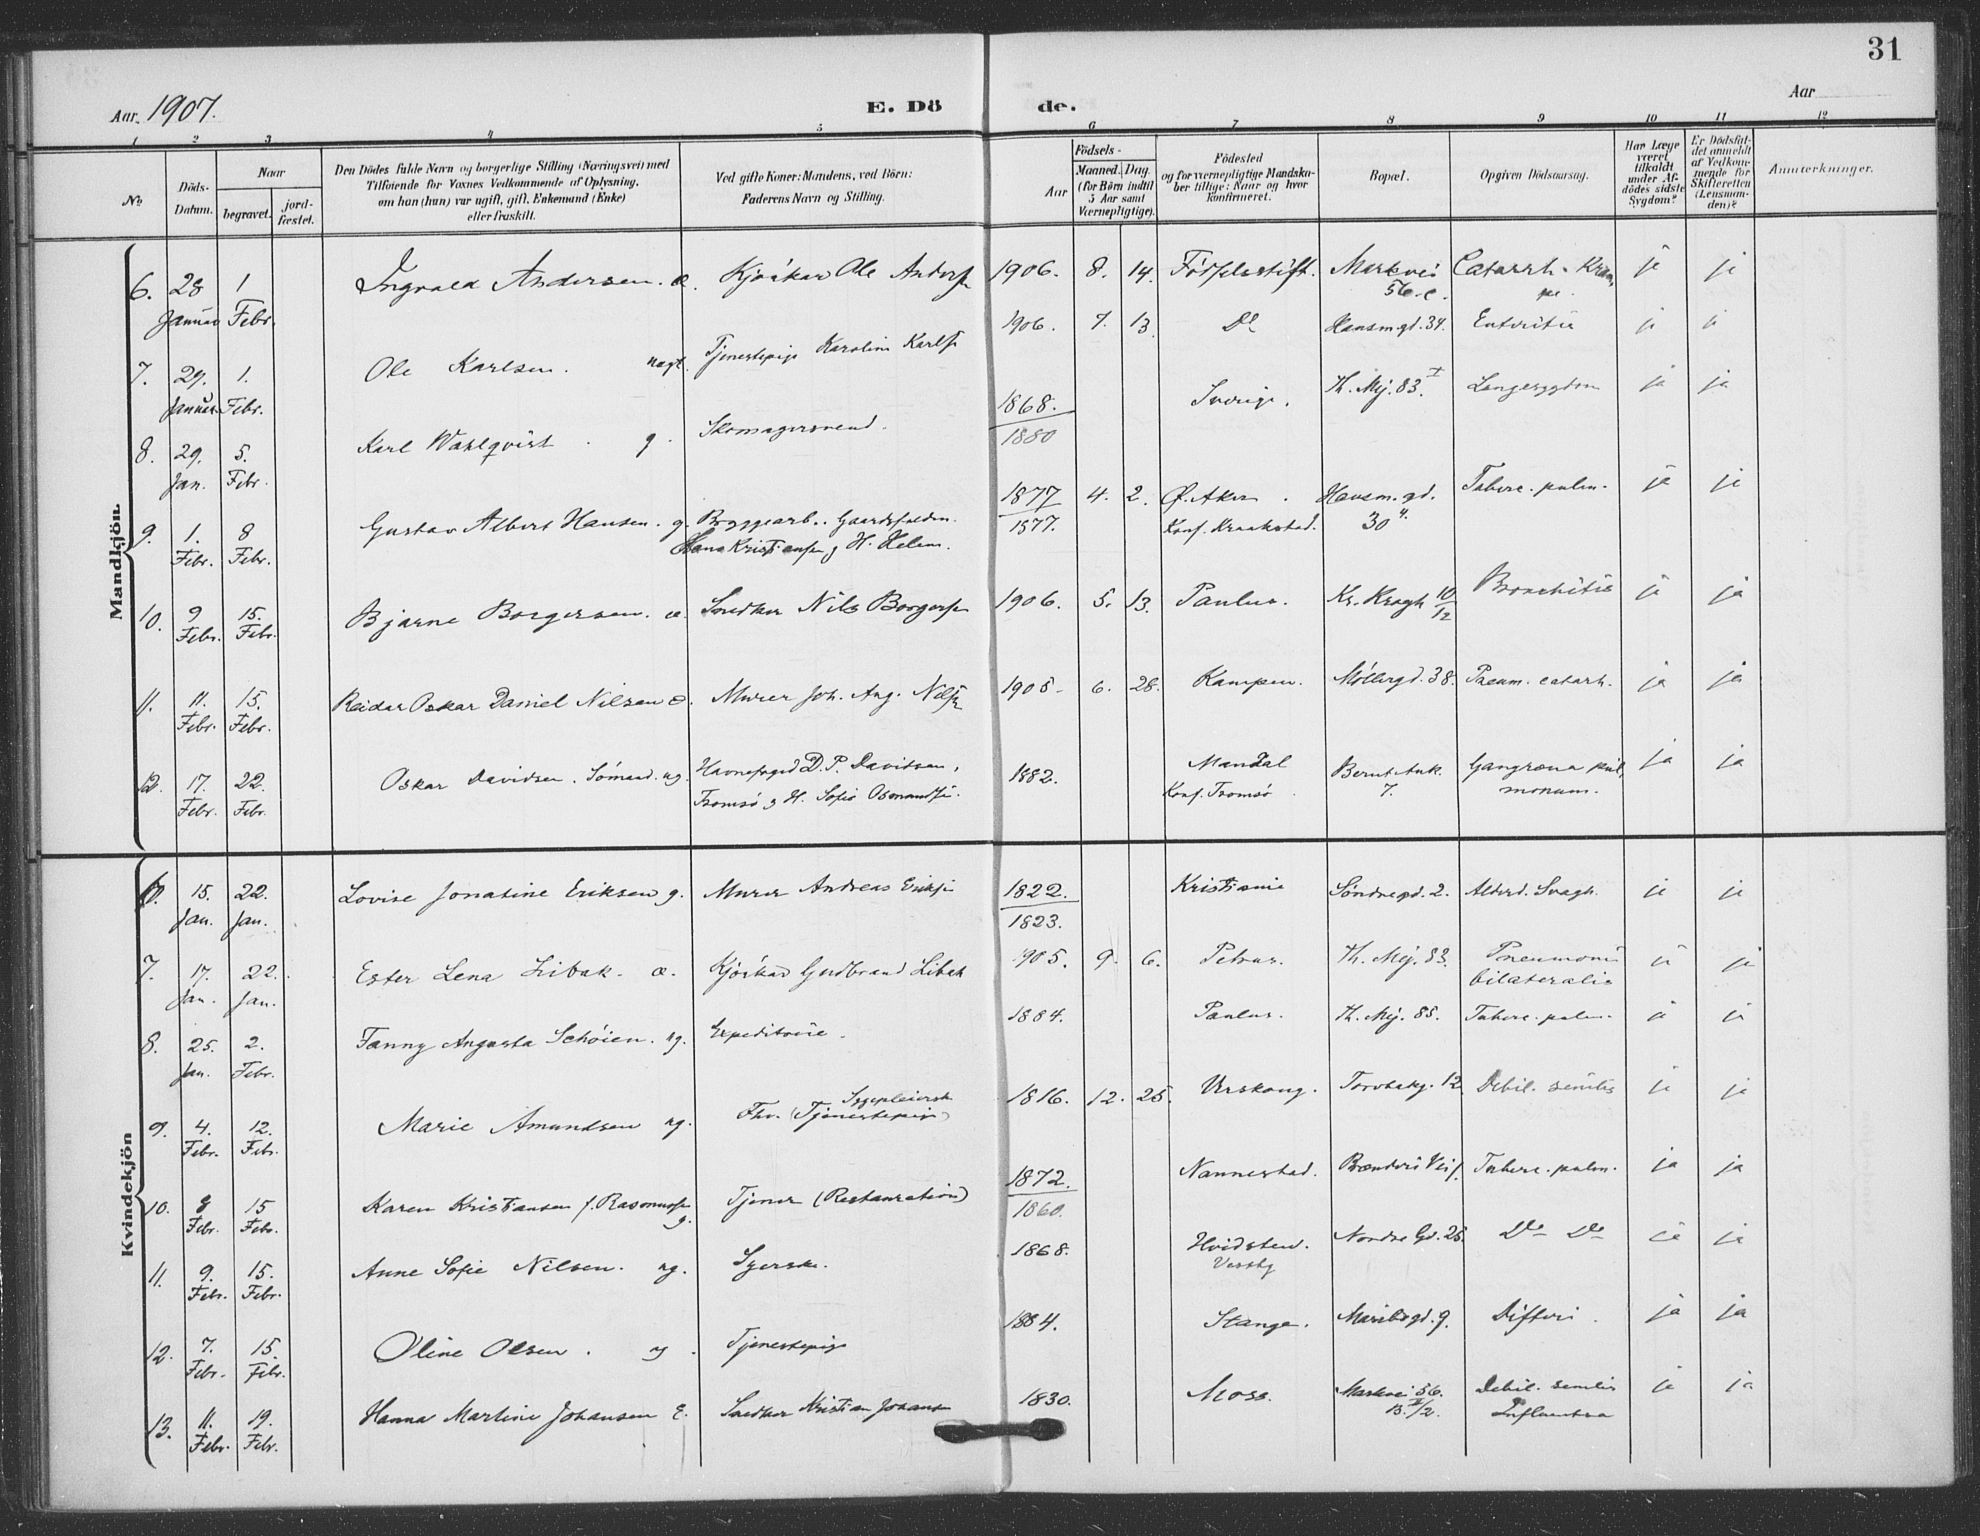 31
Aar 1907.
E. Dö
de.
Aar
1 2 3 4 5 6 7 8 9 10 11 12
№
Döds-Datum.
Naar
begravet.
jord-fæstet.
Den Dödes fulde Navn og borgerlige Stilling (Næringsvei) med
Tilføiende for Voxnes Vedkommende af Oplysning,
om han (hun) var ugift, gift, Enkemand (Enke)
eller fraskilt.
Ved gifte Koner: Mandens, ved Börn:
Faderens Navn og Stilling.
Födsels-
Aar
Maaned. Dag.
(for Börn indtil
5 Aar samt
Værnepligtige).
Födested
og for værnepligtige Mandska-
ber tillige: Naar og hvor
konfirmeret.
Bopæl.
Opgiven Dödsaarsag.
Har Læge
været
tilkaldt
under Af-
dødes sidste
Sygdom?
Er Dödsfal-
det anmeldt
af Vedkom-
mende for
Skifteretten
(Lensman-
den)?
Anmærkninger.
Mandkjön.
6. 28 Januar 1 Febr. Ingvald Andersen. æ. Kjørekar Ole Anders 1906. 8. 14. Fødselsstift. Markvei 56 c. Catarrh. ja ja
7. 29. Januar 1. Febr. Ole Karlsen. uægt. Tjenestepige Karoline Karls 1906. 7. 13 Do Hausm.gd. 34. Enteritis ja ja
8. 29. Jan. 5. Febr. Karl Wahlqvist. g. Skomagersvend. 1868. 1880 Sverige. Th. Mej. 83. I Lungesygdom ja ja
9. 1. Febr. 8 Febr. Gustav Albert Hansen. g. Bryggearb. Gaardsfalden. Hans Kristians og H. Helene. 1877 1577. 4. 2. Ø. Aker. Konf. Kraakstad. Hausm. gd. 30 4. Tuberc. pulm. ja ja
10. 9 Febr. 15. Febr. Bjarne Borgersen. æ. Snedker Nils Borgers 1906. 5. 13. Paulus. Kr. Kragh 10/12 Bronchitis ja ja
11. 11. Febr. 15. Febr. Reidar Oskar Daniel Nilsen æ. Murer Joh. Aug. Nilss 1905. 6. 28. Kampen. Møllergd. 38. Pneum. catarh. ja ja
12. 17. Febr. 22. Febr. Oskar Davidsen. Sømand. ug. Havnefoged D. P. Davidsen, Tromsø og H. Sofie 1882. Mandal Konf. Tromsø. Bernt Ank. 7. Gangræna pulmonum. ja ja
Kvindekjön
6. 15. Jan. 22. Jan. Lovise Jonatine Eriksen g. Murer Andreas Eriks 1822. 1823. Kristiania Søndregd. 2. Alderd. Svagh. ja ja
7. 17. Jan. 22. Jan. Ester Lena Libak. æ. Kjørekar Gudbrand Libak 1905. 9. 6. Petrus. Th. Mej. 83. Pneumoni bilateralis ja ja
8. 25. Jan. 2. Febr. Fanny Augusta Schøien. ug. Expeditrice. 1884. Paulus. Th. Mej. 85. Tuberc. pulm. ja ja
9. 4. Febr. 12. Febr. Marie Amundsen ug. Fhv. Sygepleiersk (Tjenestepige) 1816. 12. 25. Urskoug. Torvbakg. 12 Debil. senilis ja ja
10. 8 Febr. 15 Febr. Karen Kristiansen f. Rasmuss g. Tjener (Restauration) 1872. 1860. Nannestad. Tuberc. pulm. ja ja
11. 9. Febr. 15. Febr. Anne Sofie Nilsen. ug. Syerske. 1868. Hvidsten. Vestby Nordre Gd. 25. Do Do ja ja
12. 7. Febr. 15. Febr. Oline Olsen. ug. Tjenestepige 1884. Stange. Maribogd. 9. Difteri. ja ja
13. 11. Febr. 19. Febr. Hanna Martine Johansen E. Snedker Kristian Johans 1830. Moss. Markvei 56. Debil. senilis Influentsa ja ja